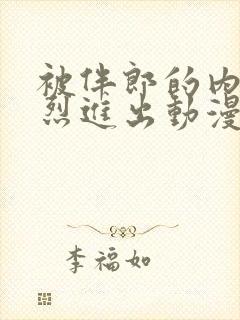 被伴郎的内
烈进出動漫
李福如